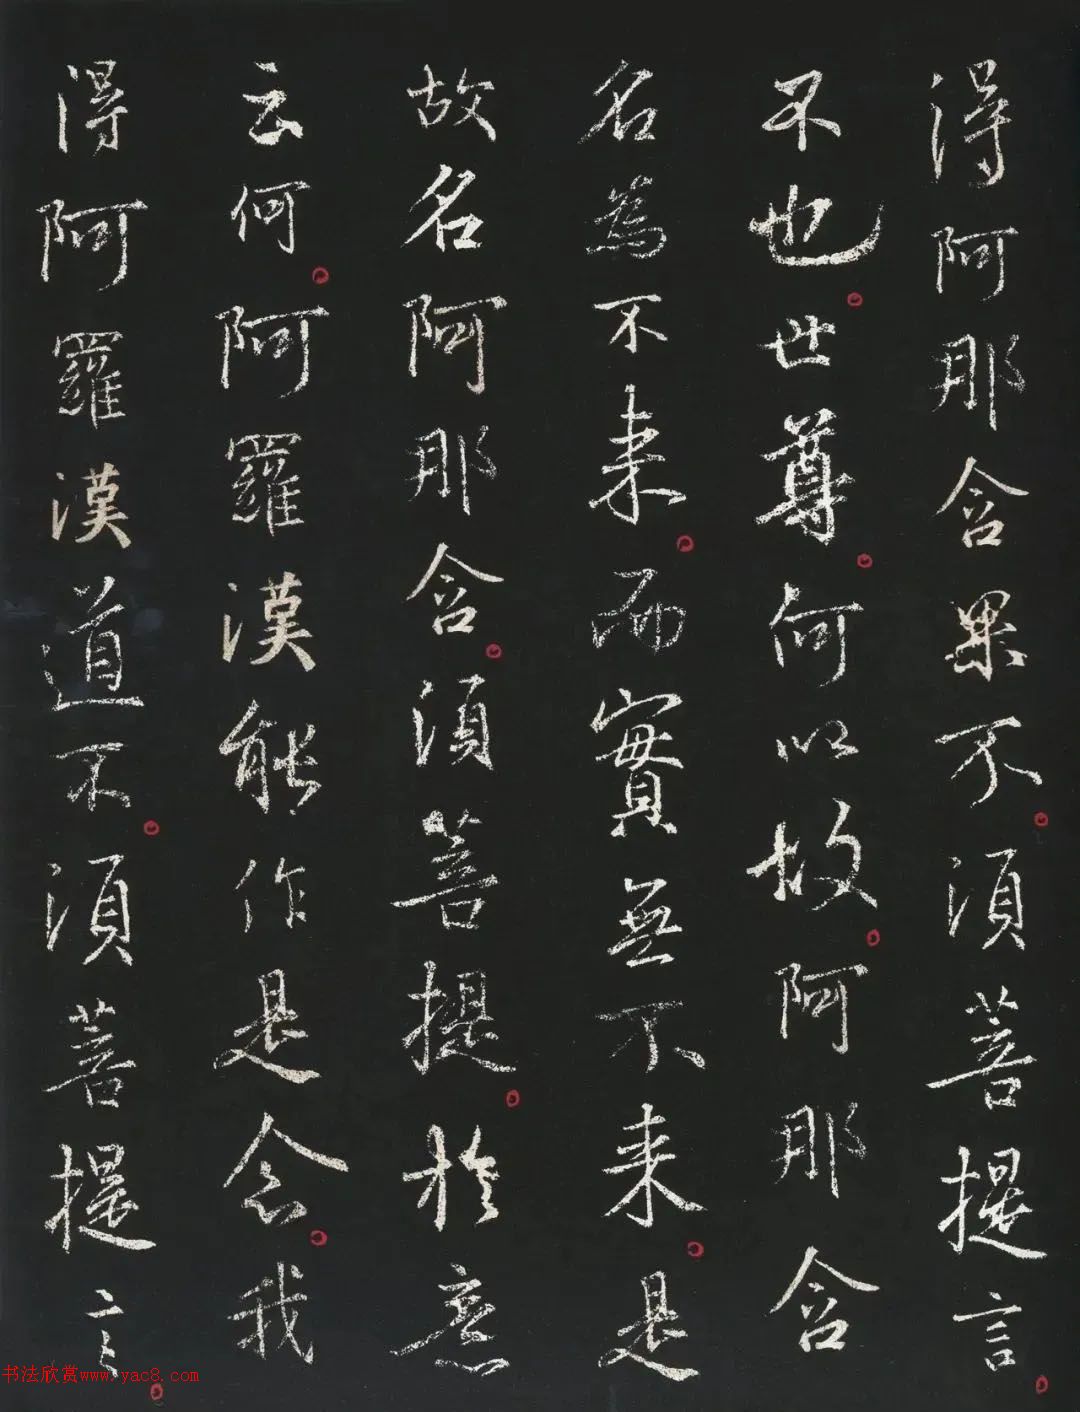 得阿那含果不須菩提言
不也世尊何以故阿那含
名為不来而實無不来是
故名阿那含須菩提於意
云何阿羅漢能作是念我
得阿羅漢道不須菩提言
书法欣赏www.yac8.com